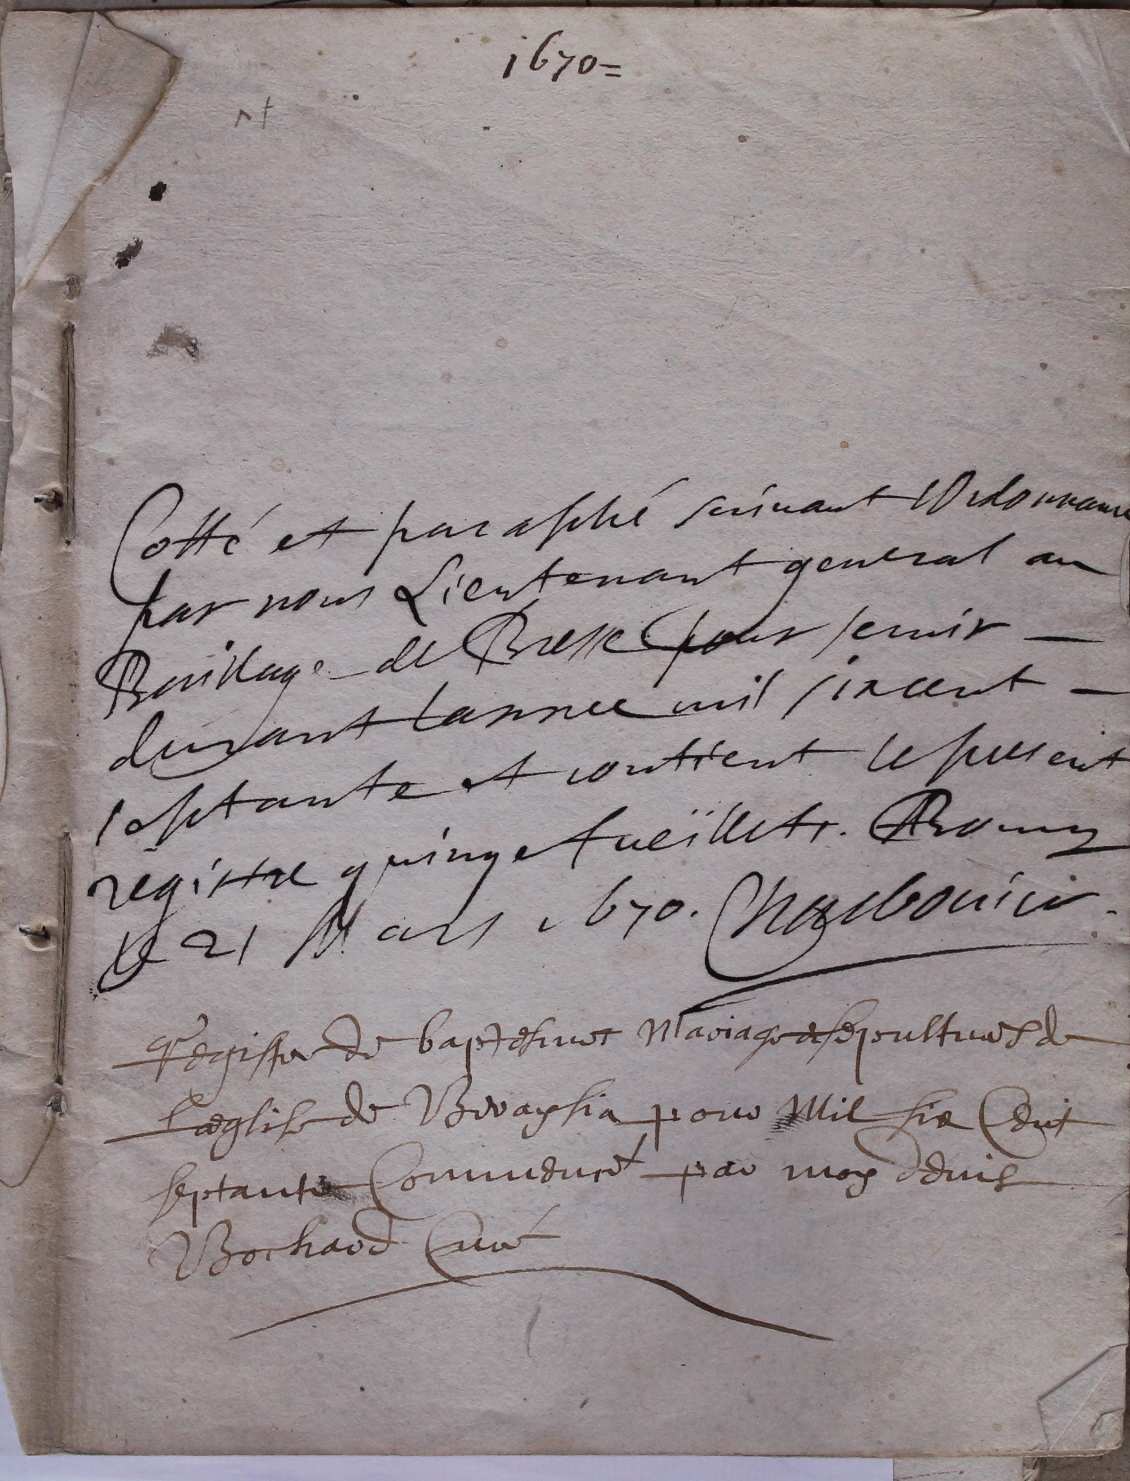 1670=
Cotté et paraphé suivant lOrdonnance
par nous Lieutenant general au
Bailliage de Bresse pour servir
durant lannee mil sixcent
septante et contient le present
registre quinze fueïllets. Bourg
le 21 Mars 1670. Charbonnier.
Registre de baptesmes Mariages et sepultures de
Laeglise de pour Mil six Cent
septante Commencé par moy Denis
Bochard Curé